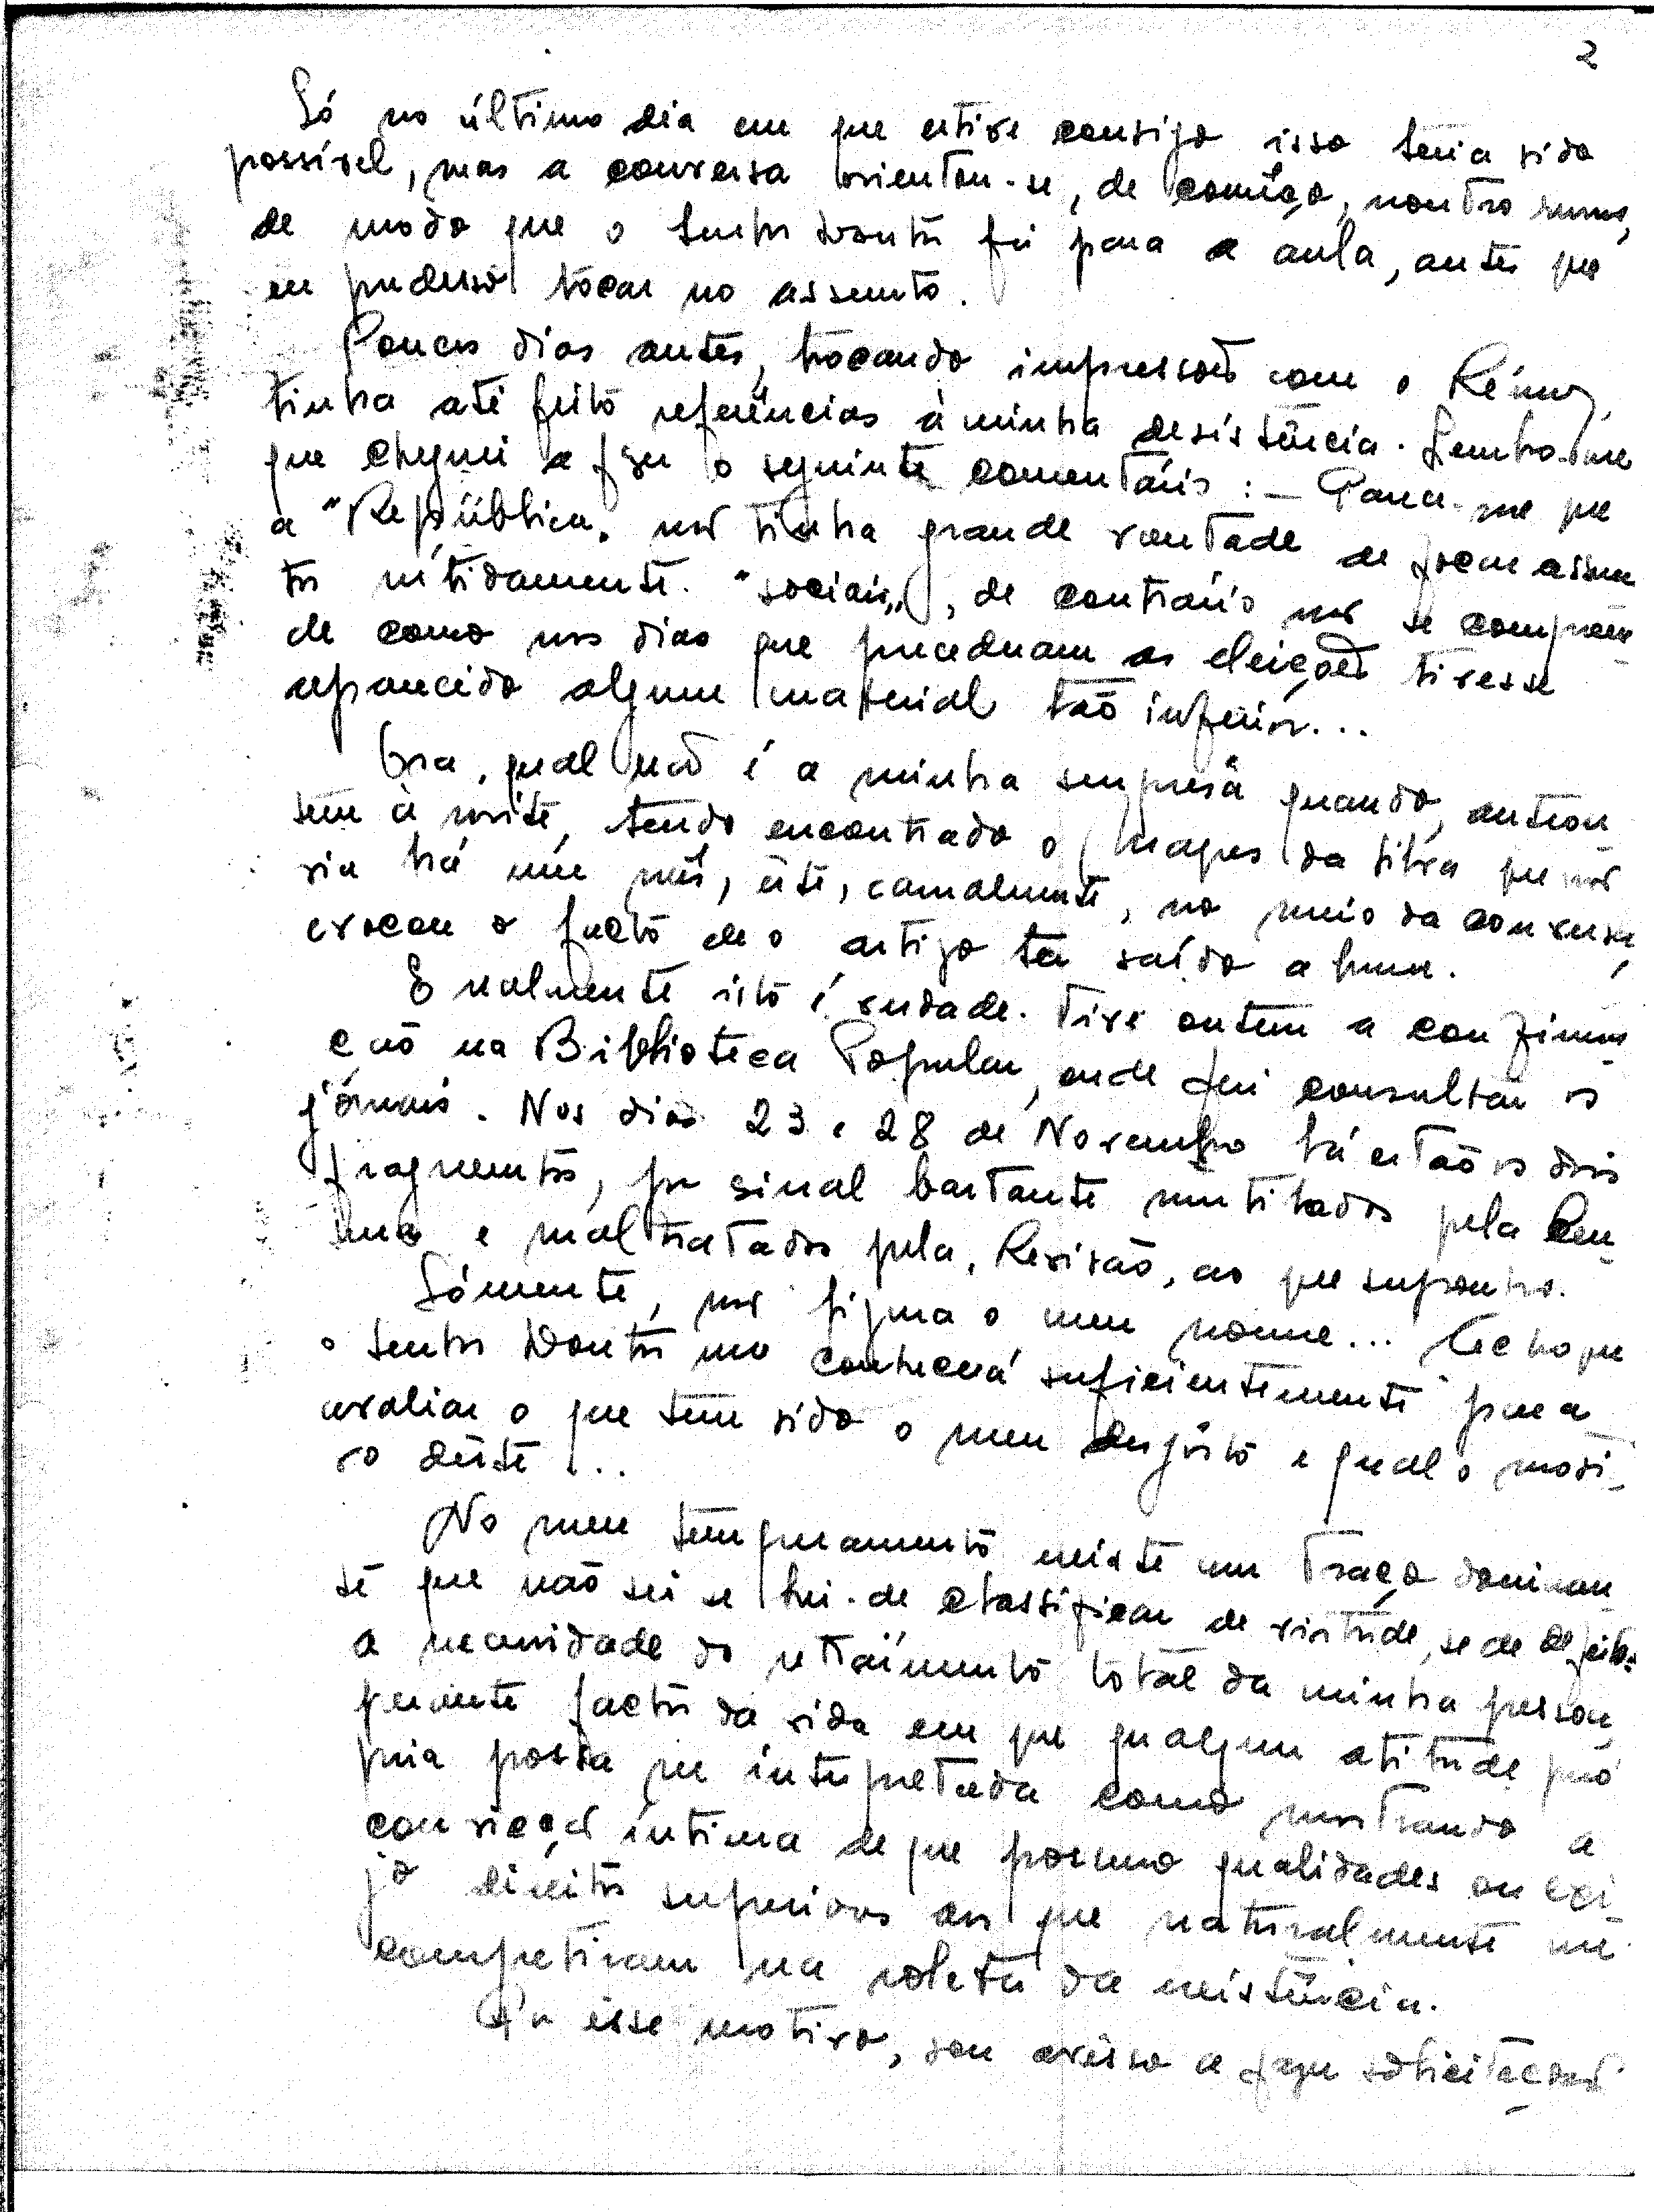 2
Só no último dia em que estive consigo isso teria sido
possível, mas a conversa orientou-se, de comêço, noutro rumo,
de modo que o Senhor Doutor foi para a aula, antes que
eu pudesse tocar no assunto.
Poucos dias antes, trocando impressões com o Rémy,
tinha até feito referências à minha desistência. Lembro-me
que cheguei a fazer o seguinte comentário: — Parece-me que
a "República" não tinha grande vontade de focar assun
tos nitidamente "sociais", de contrário não se compreen
de como nos dias que precederam as eleições tivesse
aparecido algum material tão inferior...
Ora, qual não é a minha surprêsa quando, anteon
tem à noite, tendo encontrado o Magnes da Silva que não
via há um mês, êste, casualmente, no meio da conversa,
evocou o facto de o artigo ter saído a lume.
E realmente isto é verdade. Tive ontem a confirma
ção na Biblioteca Popular, onde fui consultar os
jornais. Nos dias 23 e 28 de Novembro lá estão os dois
fragmentos, por sinal bastante mutilados pela Cen
sura e maltratados pela Revisão, ao que suponho.
Sómente, não figura o meu nome... Creio que
o Senhor Doutor me conhecerá suficientemente para
avaliar o que tem sido o meu desgôsto e qual o moti-
vo dêste...
No meu temperamento existe um traço dominan
te que não sei se hei-de classificar de virtude, se de defeito:
a necessidade do retraímento total da minha pessoa,
perante factos da vida em que qualquer atitude pró
pria possa ser interpretada como mostrando a
convicção íntima de que possuo qualidades ou exi
jo direitos superiores aos que naturalmente me
competiram na roleta da existência.
Por êsse motivo, sou avêsso a fazer solicitações